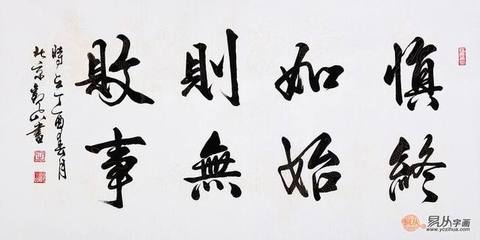 慎終
如始
則無
敗事
時在丁酉春月
北京劉山書
易从字画
www.yczihua.com